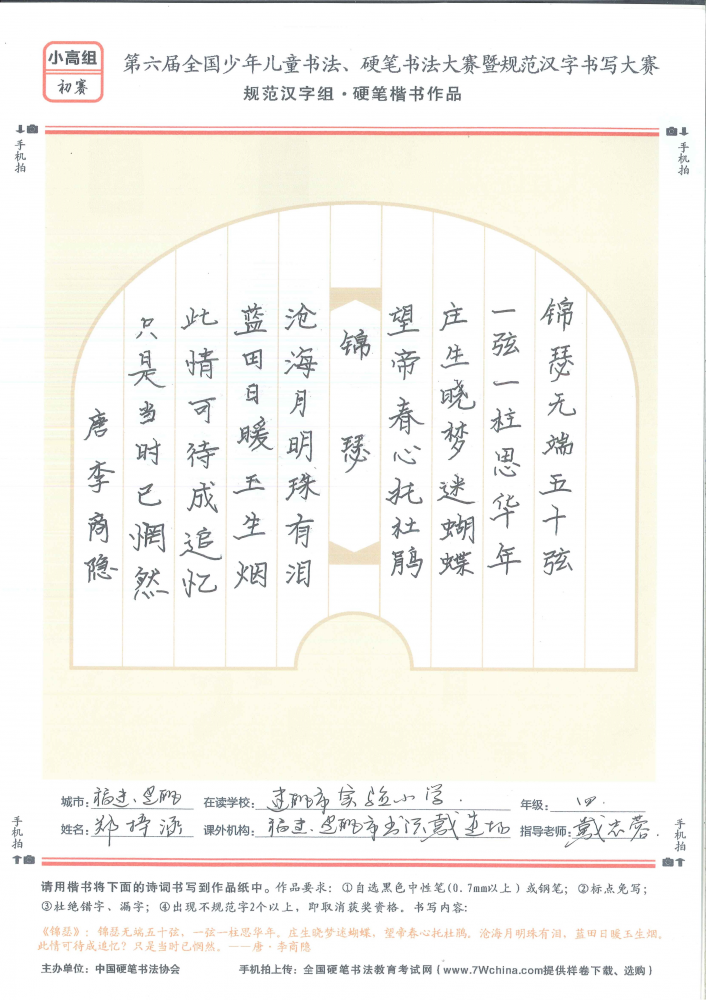 小高组
初赛
第六届全国少年儿童书法、硬笔书法大赛暨规范汉字书写大赛
规范汉字组·硬笔楷书作品
手机拍
手机拍
锦瑟无端五十弦
一弦一柱思华年
庄生晓梦迷蝴蝶
望帝春心托杜鹃
锦瑟
沧海月明珠有泪
蓝田日暖玉生烟
此情可待成追忆
只是当时已惘然
唐李商隐
城市：福建. 在读学校：市实验小学. 年级：四.
姓名：郑梓涵 课外机构：福建. 指导老师：戴志蓉.
手机拍
手机拍
请用楷书将下面的诗词书写到作品纸中。作品要求：①自选黑色中性笔(0.7mm以上)或钢笔；②标点免写；
③杜绝错字、漏字；④出现不规范字2个以上，即取消获奖资格。书写内容：
《锦瑟》：锦瑟无端五十弦，一弦一柱思华年。庄生晓梦迷蝴蝶，望帝春心托杜鹃。沧海月明珠有泪，蓝田日暖玉生烟。
此情可待成追忆？只是当时已惘然。——唐·李商隐
主办单位：中国硬笔书法协会 手机拍上传：全国硬笔书法教育考试网（www.7Wchina.com提供样卷下载、选购）